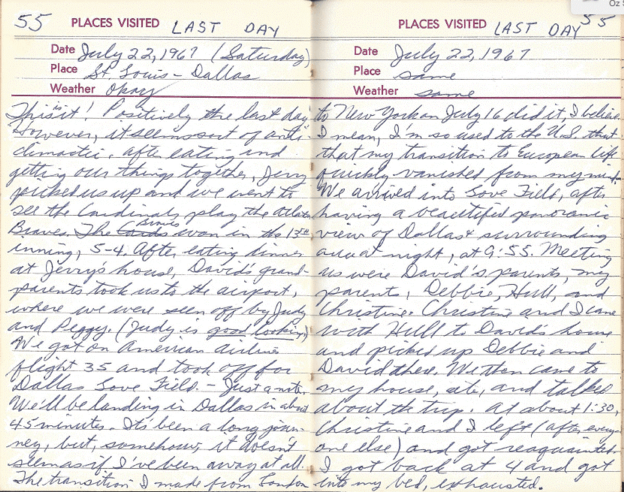 55 PLACES VISITED LAST DAY
Date July 22, 1967 (Saturday)
Place St. Louis - Dallas
Weather Okay
This is it! Positively the last day.
However, it seems sort of anti-
climactic. After eating and
getting our things together, Jerry
picked us up and we went to
see the Cardinals play the Atlanta
Braves. The Braves won in the 13th
inning, 5-4. After eating dinner
at Jerry's house, David's grand-
parents took us to the airport,
where we were seen off by Judy
and Peggy. (Judy is good looking)
We got on American Airlines
flight 35 and took off for
Dallas Love Field. - Just a note,
We'll be landing in Dallas in about
45 minutes. It's been a long jour-
ney, but, somehow, it doesn't
seem as if I've been away at all.
The transition I made from London
PLACES VISITED LAST DAY 55
Date July 22, 1967
Place same
Weather same
to New York on July 16 did it, I believe.
I mean, I'm so used to the U.S. that
that my transition to European life
quickly vanished from my mind.
We arrived into Love Field, after
having a beautiful panoramic
view of Dallas & surrounding
area at night, at 9:55. Meeting
us were David's parents, my
parents, Debbie, Hull, and
Christine. Christine and I came
with Hull to David's house
and picked up Debbie and
David there. We then came to
my house, ate, and talked
about the trip. At about 1:30,
Christine and I left (after every-
one else) and got reaquainted.
I got back at 4 and got
into my bed, exhausted.